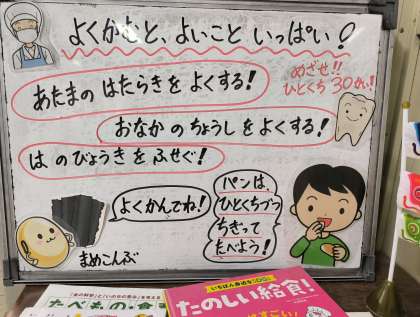 よくかむと、よいこと いっぱい！
めざせ!!
ひとくち 30かい！
あたまの はたらきを よくする！
おなか の ちょうし を よくする！
は の びょうき を ふせぐ！
よくかんでね！
まめこんぶ
パンは、
ひとくちづつ
ちぎって
たべよう！
たべもの・食
いちばん身近なSDGs
たのしい給食！